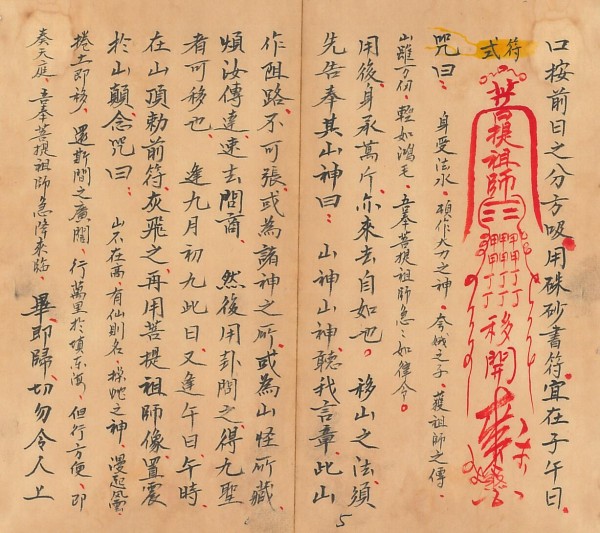 口按前日之分方吸用硃砂書符宜在子午日
符式
菩提祖師
甲甲甲甲
丁丁丁丁
移開
咒曰
身受法水、碩作大力之神、夸娥之子、蒙祖師之傳、
山雖万仞、輕如鴻毛、吾奉菩提祖師急急如律令。
用後身承萬斤亦來去自如也。移山之法須
先告奉其山神曰、山神山神聽我言章、此山
作阻路、不可張、或為諸神之所、或為山怪所藏、
煩汝傳達、速去開商、然後用卦問之、得九聖
者可移也、逢九月初九此日又逢午日午時
在山頂勅前符、灰飛之再用菩提祖師像、置震
於山顛、念咒曰、山不在高、有仙則名、操蛇之神、漫起風雷、
捲土即移、還斯間之廣闊、行萬里於頃東海、但行方便、即
奏天庭、吾奉菩提祖師急降來臨、畢即歸、切勿令人上
5